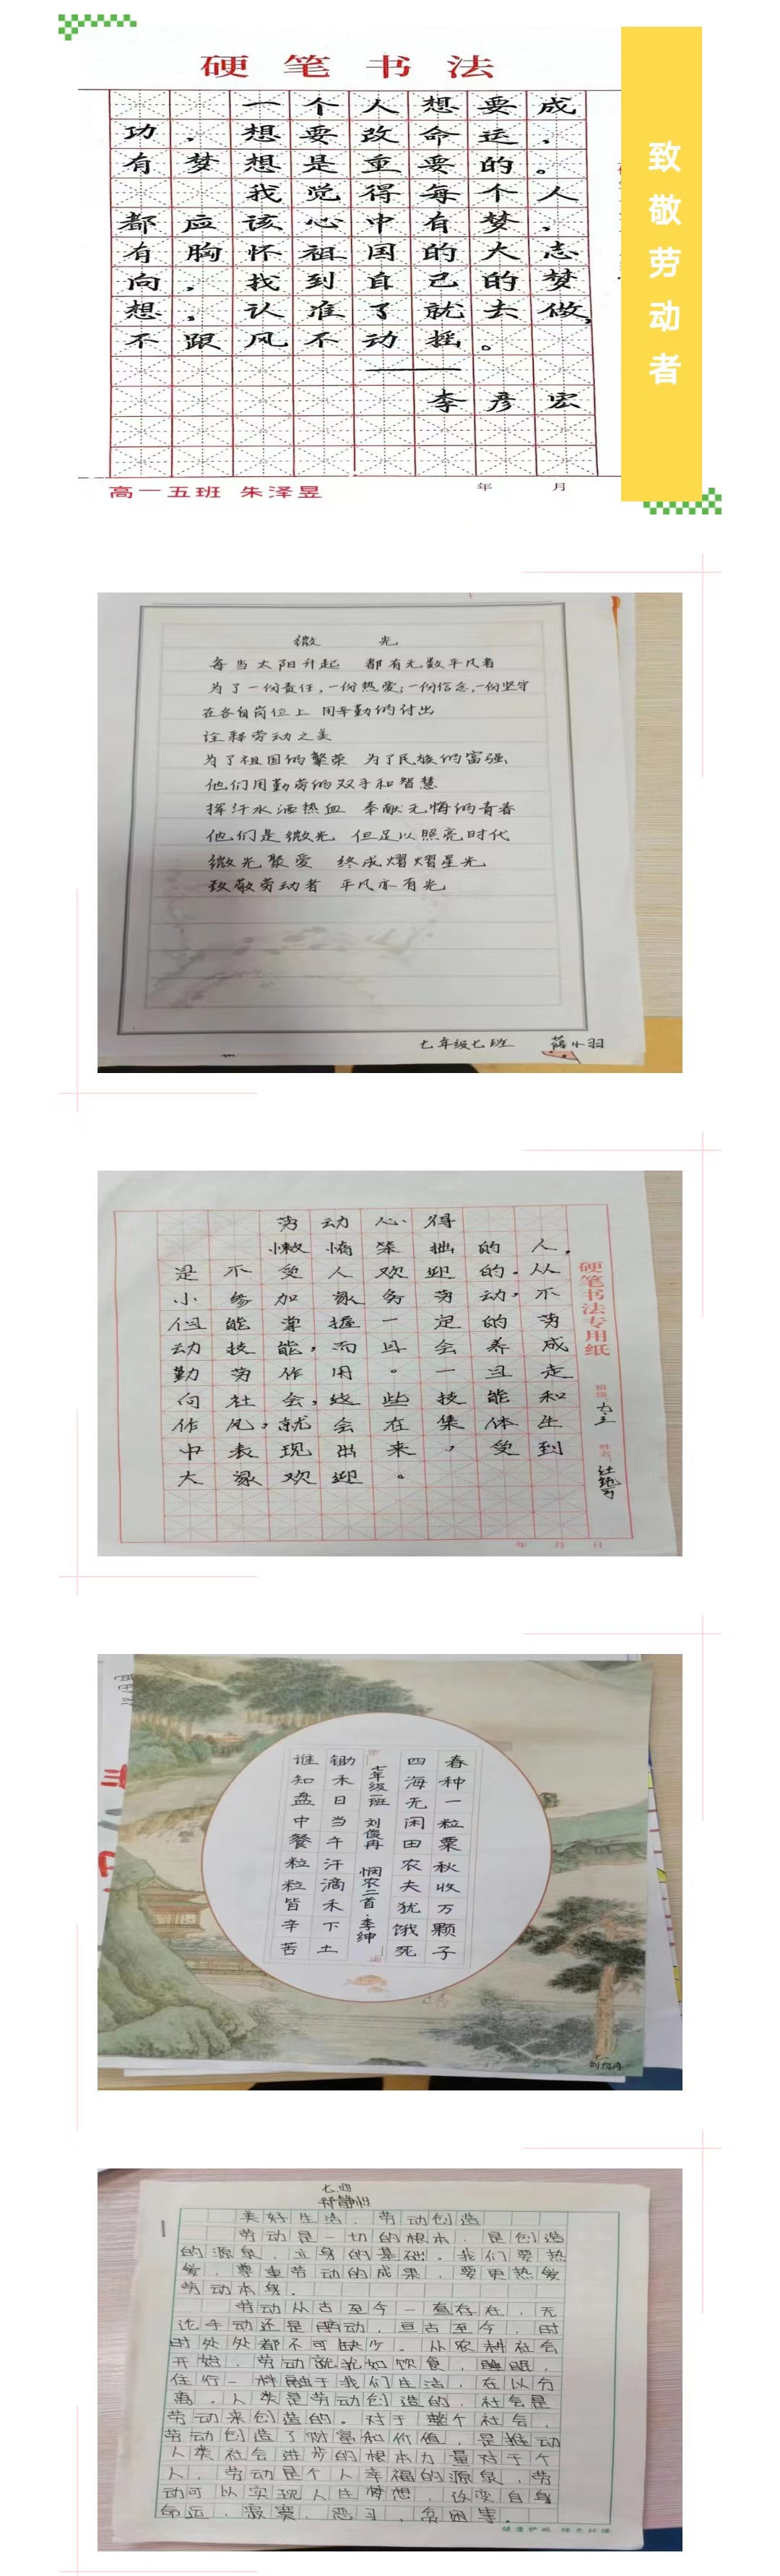 硬笔书法
一个人想要成
功，想要改命运，
有梦想是重要的。
我觉得每个人
都应该心中有梦，
有胸怀祖国的大志
向，找到自己的梦
想，认准了就去做，
不跟风不动摇。
——
李彦宏
高一五班 朱泽昱
年 月
致敬劳动者
微 光
每当太阳升起 都有无数平凡者
为了一份责任，一份热爱；一份信念，一份坚守
在各自岗位上 用辛勤的付出
诠释劳动之美
为了祖国的繁荣 为了民族的富强
他们用勤劳的双手和智慧
挥汗水洒热血 奉献无悔的青春
他们是微光 但足以照亮时代
微光聚爱 终成熠熠星光
致敬劳动者 平凡亦有光
七年级七班 小羽
劳动心得
懒惰笨拙的人，
是不受人欢迎的。从
小参加家务劳动，不
但能掌握一定的劳
动技能，而且会养成
勤劳作用。一旦走
向社会，这些技能和
作风，就会在集体生
中表现出来，受到
大家欢迎。
硬笔书法专用纸
班级
姓名
年 月 日
春种一粒粟秋收万颗子
四海无闲田农夫犹饿死
七年级一班 刘俊冉 悯农二首·李绅
锄禾日当午汗滴禾下土
谁知盘中餐粒粒皆辛苦
七一
刘俊冉
七.四
郑静怡
美好生活，劳动创造
劳动是一切的根本，是创造
的源泉，立身的基础。我们要热
爱，尊重劳动的成果，要更热爱
劳动本身。
劳动从古至今一直存在，无
论手动还是脑动，亘古至今，时
时处处都不可缺少。从农耕社会
开始，劳动就犹如饮食，睡眠，
住行一样融于我们生活，在以分
离。人类是劳动创造的，社会是
劳动来创造的。对于整个社会，
劳动创造了财富和价值，是推动
人类社会进步的根本力量对于个
人，劳动是个人幸福的源泉，劳
动可以实现人生梦想，改变自身
命运，寂寞，恶习，贫困等。